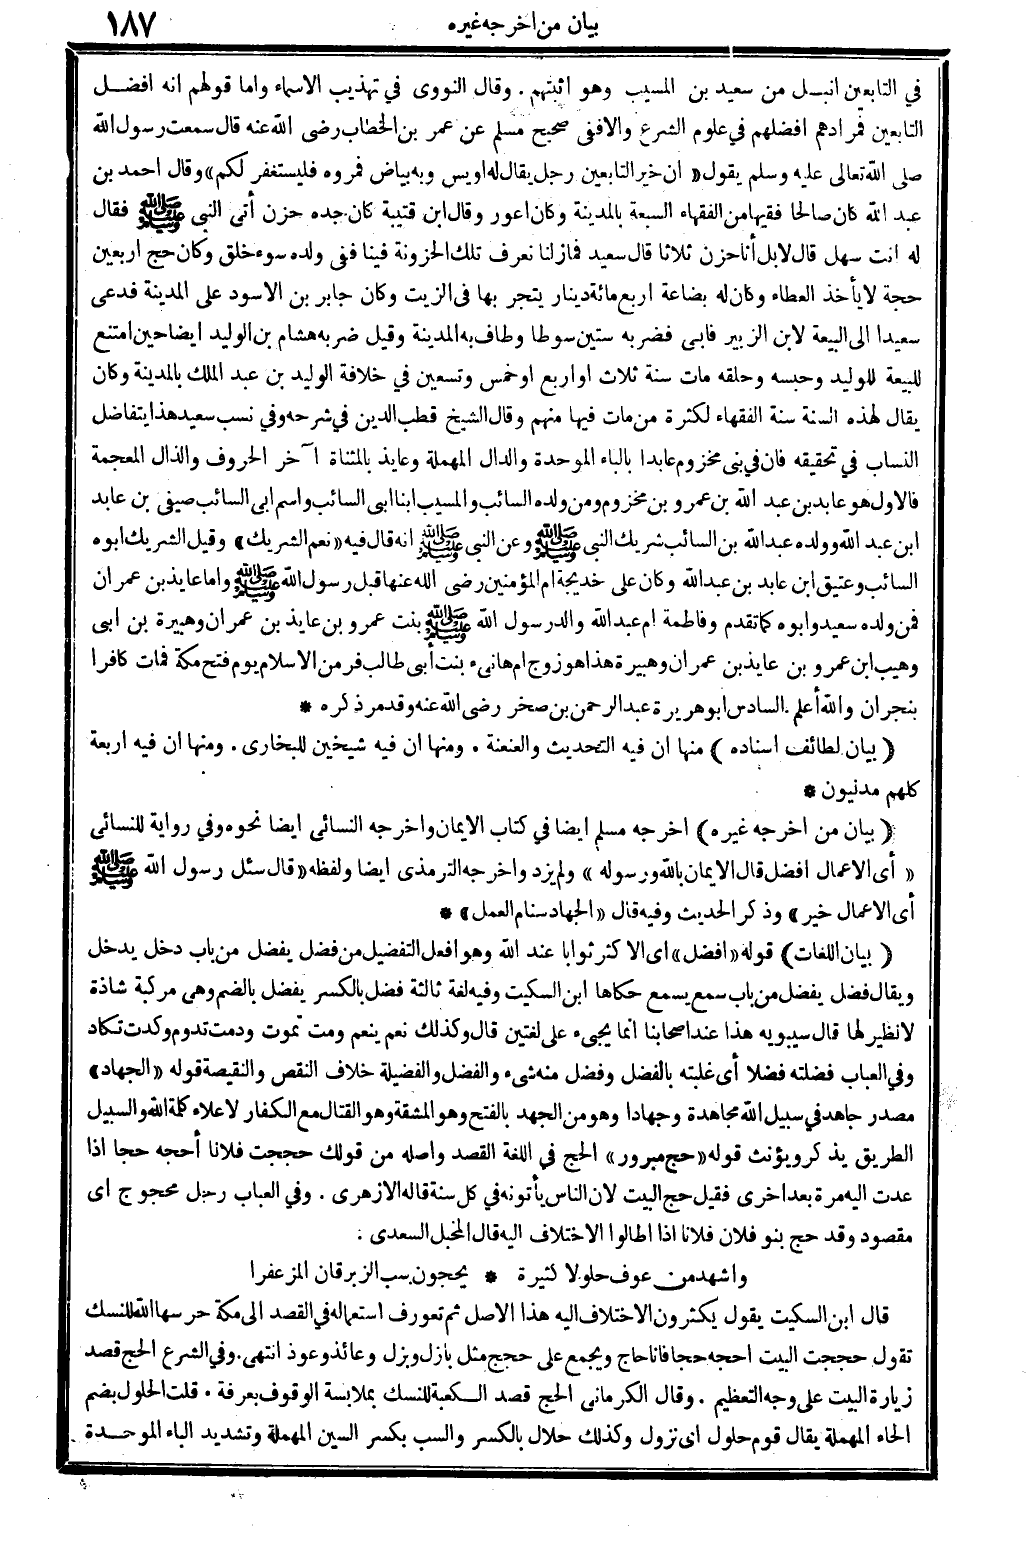 بيان من اخرجه غيره ١٨٧
في التابعين انبل من سعيد بن المسيب وهو اثبتهم . وقال النووى في تهذيب الاسماء واما قولهم انه افضل
التابعين فمرادهم افضلهم في علوم الشرع والافنى صحيح مسلم عن عمر بن الخطاب رضى الله عنه قال سمعت رسول الله
صلى الله تعالى عليه وسلم يقول « ان خير التابعين رجل يقال له اويس وبه بياض فمروه فليستغفر لكم» وقال احمد بن
عبد الله كان صالحا فقيها من الفقهاء السبعة بالمدينة وكان اعور وقال ابن قتيبة كان جده حزن أتى النبي ﷺ فقال
له انت سهل قال لا بل أنا حزن ثلاثا قال سعيد فمازلنا نعرف تلك الحزونة فينا ففى ولده سوء خلق وكان حج اربعين
حجة لا يأخذ العطاء وكان له بضاعة اربع مائة دينار يتجر بها فى الزيت وكان جابر بن الاسود على المدينة فدعى
سعيدا الى البيعة لابن الزبير فابى فضربه ستين سوطا وطاف به المدينة وقيل ضربه هشام بن الوليد ايضا حين امتنع
للبيعة للوليد وحبسه وحلقه مات سنة ثلاث او اربع او خمس وتسعين في خلافة الوليد بن عبد الملك بالمدينة وكان
يقال لهذه السنة سنة الفقهاء لكثرة من مات فيها منهم وقال الشيخ قطب الدين في شرحه وفي نسب سعيد هذا يتفاضل
النساب في تحقيقه فان في بنى مخزوم عابدا بالباء الموحدة والدال المهملة وعايذ بالمثناة آخر الحروف والذال المعجمة
فالاول هو عابد بن عبد الله بن عمرو بن مخزوم ومن ولده السائب والمسيب ابنا ابى السائب واسم ابى السائب صيفى بن عابد
ابن عبد الله وولده عبد الله بن السائب شريك النبي ﷺ وعن النبي ﷺ انه قال فيه «نعم الشريك» وقيل الشريك ابوه
السائب وعتيق ابن عابد بن عبد الله وكان على خديجة ام المؤمنين رضى الله عنها قبل رسول الله ﷺ واما عايذ بن عمران
فمن ولده سعيد وابوه كما تقدم وفاطمة ام عبد الله والد رسول الله ﷺ بنت عمرو بن عايذ بن عمران وهبيرة بن ابى
وهيب ابن عمرو بن عايذ بن عمران وهبيرة هذا هو زوج ام هانىء بنت أبى طالب فر من الاسلام يوم فتح مكة فمات كافرا
بنجران والله أعلم . السادس ابو هريرة عبد الرحمن بن صخر رضى الله عنه وقد مر ذكره *
( بيان لطائف اسناده ) منها ان فيه التحديث والعنعنة . ومنها ان فيه شيخين للبخارى . ومنها ان فيه اربعة
كلهم مدنيون *
( بيان من اخرجه غيره ) اخرجه مسلم ايضا في كتاب الايمان واخرجه النسائى ايضا نحوه وفي رواية للنسائى
« أى الاعمال افضل قال الايمان بالله ورسوله » ولم يزد واخرجه الترمذى ايضا ولفظه «قال سئل رسول الله ﷺ
أى الاعمال خير» وذكر الحديث وفيه قال «الجهاد سنام العمل» *
( بيان اللغات ) قوله «افضل» اى الاكثر ثوابا عند الله وهو افعل التفضيل من فضل يفضل من باب دخل يدخل
ويقال فضل يفضل من باب سمع يسمع حكاها ابن السكيت وفيه لغة ثالثة فضل بالكسر يفضل بالضم وهى مركبة شاذة
لا نظير لها قال سيبويه هذا عند اصحابنا انما يجىء على لغتين قال وكذلك نعم ينعم ومت تموت ودمت تدوم وكدت تكاد
وفي العباب فضلته فضلا أى غلبته بالفضل وفضل منه شىء والفضل والفضيلة خلاف النقص والنقيصة قوله «الجهاد»
مصدر جاهد في سبيل الله مجاهدة وجهادا وهو من الجهد بالفتح وهو المشقة وهو القتال مع الكفار لاعلاء كلمة الله والسبيل
الطريق يذكر ويؤنث قوله «حج مبرور» الحج في اللغة القصد واصله من قولك حججت فلانا أحجه حجا اذا
عدت اليه مرة بعد اخرى فقيل حج البيت لان الناس يأتونه في كل سنة قاله الازهرى . وفي العباب رجل محجوج اى
مقصود وقد حج بنو فلان فلانا اذا اطالوا الاختلاف اليه قال المخبل السعدى :
واشهد من عوف حلولا كثيرة * يحجون سب الزبرقان المزعفرا
قال ابن السكيت يقول يكثرون الاختلاف اليه هذا الاصل ثم تعورف استعماله في القصد الى مكة حرسها الله للنسك
تقول حججت البيت احجه حجا فانا حاج ويجمع على حجج مثل بازل وبزل وعائذ وعوذ انتهى . وفي الشرع الحج قصد
زيارة البيت على وجه التعظيم . وقال الكرمانى الحج قصد الكعبة للنسك بملابسة الوقوف بعرفة . قلت الحلول بضم
الحاء المهملة يقال قوم حلول اى نزول وكذلك حلال بالكسر والسب بكسر السين المهملة وتشديد الباء الموحدة